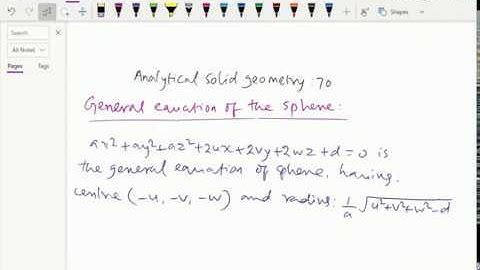 Shapes
Search
All Notes
Pages
Tags
Analytical solid geometry 70
General equation of the sphere:
ax²+ay²+az²+2ux+2vy+2wz+d=0 is
the general equation of sphere, having,
centre (-u, -v, -w) and radius: 1/a √u²+v²+w²-d